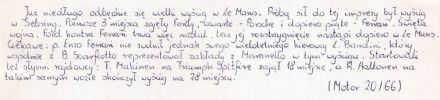 Już niedługo odbędzie się wielki wyścig w Le Mans. Próbą sił do tej imprezy był wyścig
w Sebring. Pierwsze 3 miejsca zajęły Fordy, czwarte - Porsche i dopiero piąte - Ferrari. Święta
wojna Ford kontra Ferrari trwa więc nadal, lecz jej rozstrzygnięcie nastąpi dopiero w Le Mans.
Ciekawe: p. Enzo Ferrari nie zwolnił jednak swego wieloletniego kierowcy L. Bandini, który
wspólnie z B. Scarfiotto reprezentował zakłady z Maranello w tym wyścigu. Startowali
też słynni rajdowcy: T. Makinen na Triumph Spitfire zajął 18 miejsce, a R. Aaltonen na
takim samym wozie skończył wyścig na 28 miejscu.
(Motor 20/66)